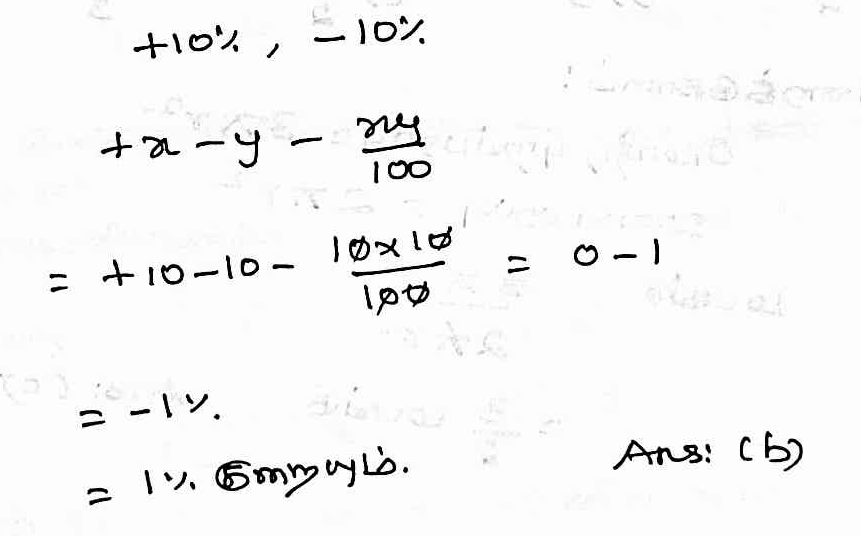 +10%, -10%
+x - y - xy/100
= +10-10- 10x10/100 = 0-1
= -1%.
= 1% குறையும். Ans: (b)